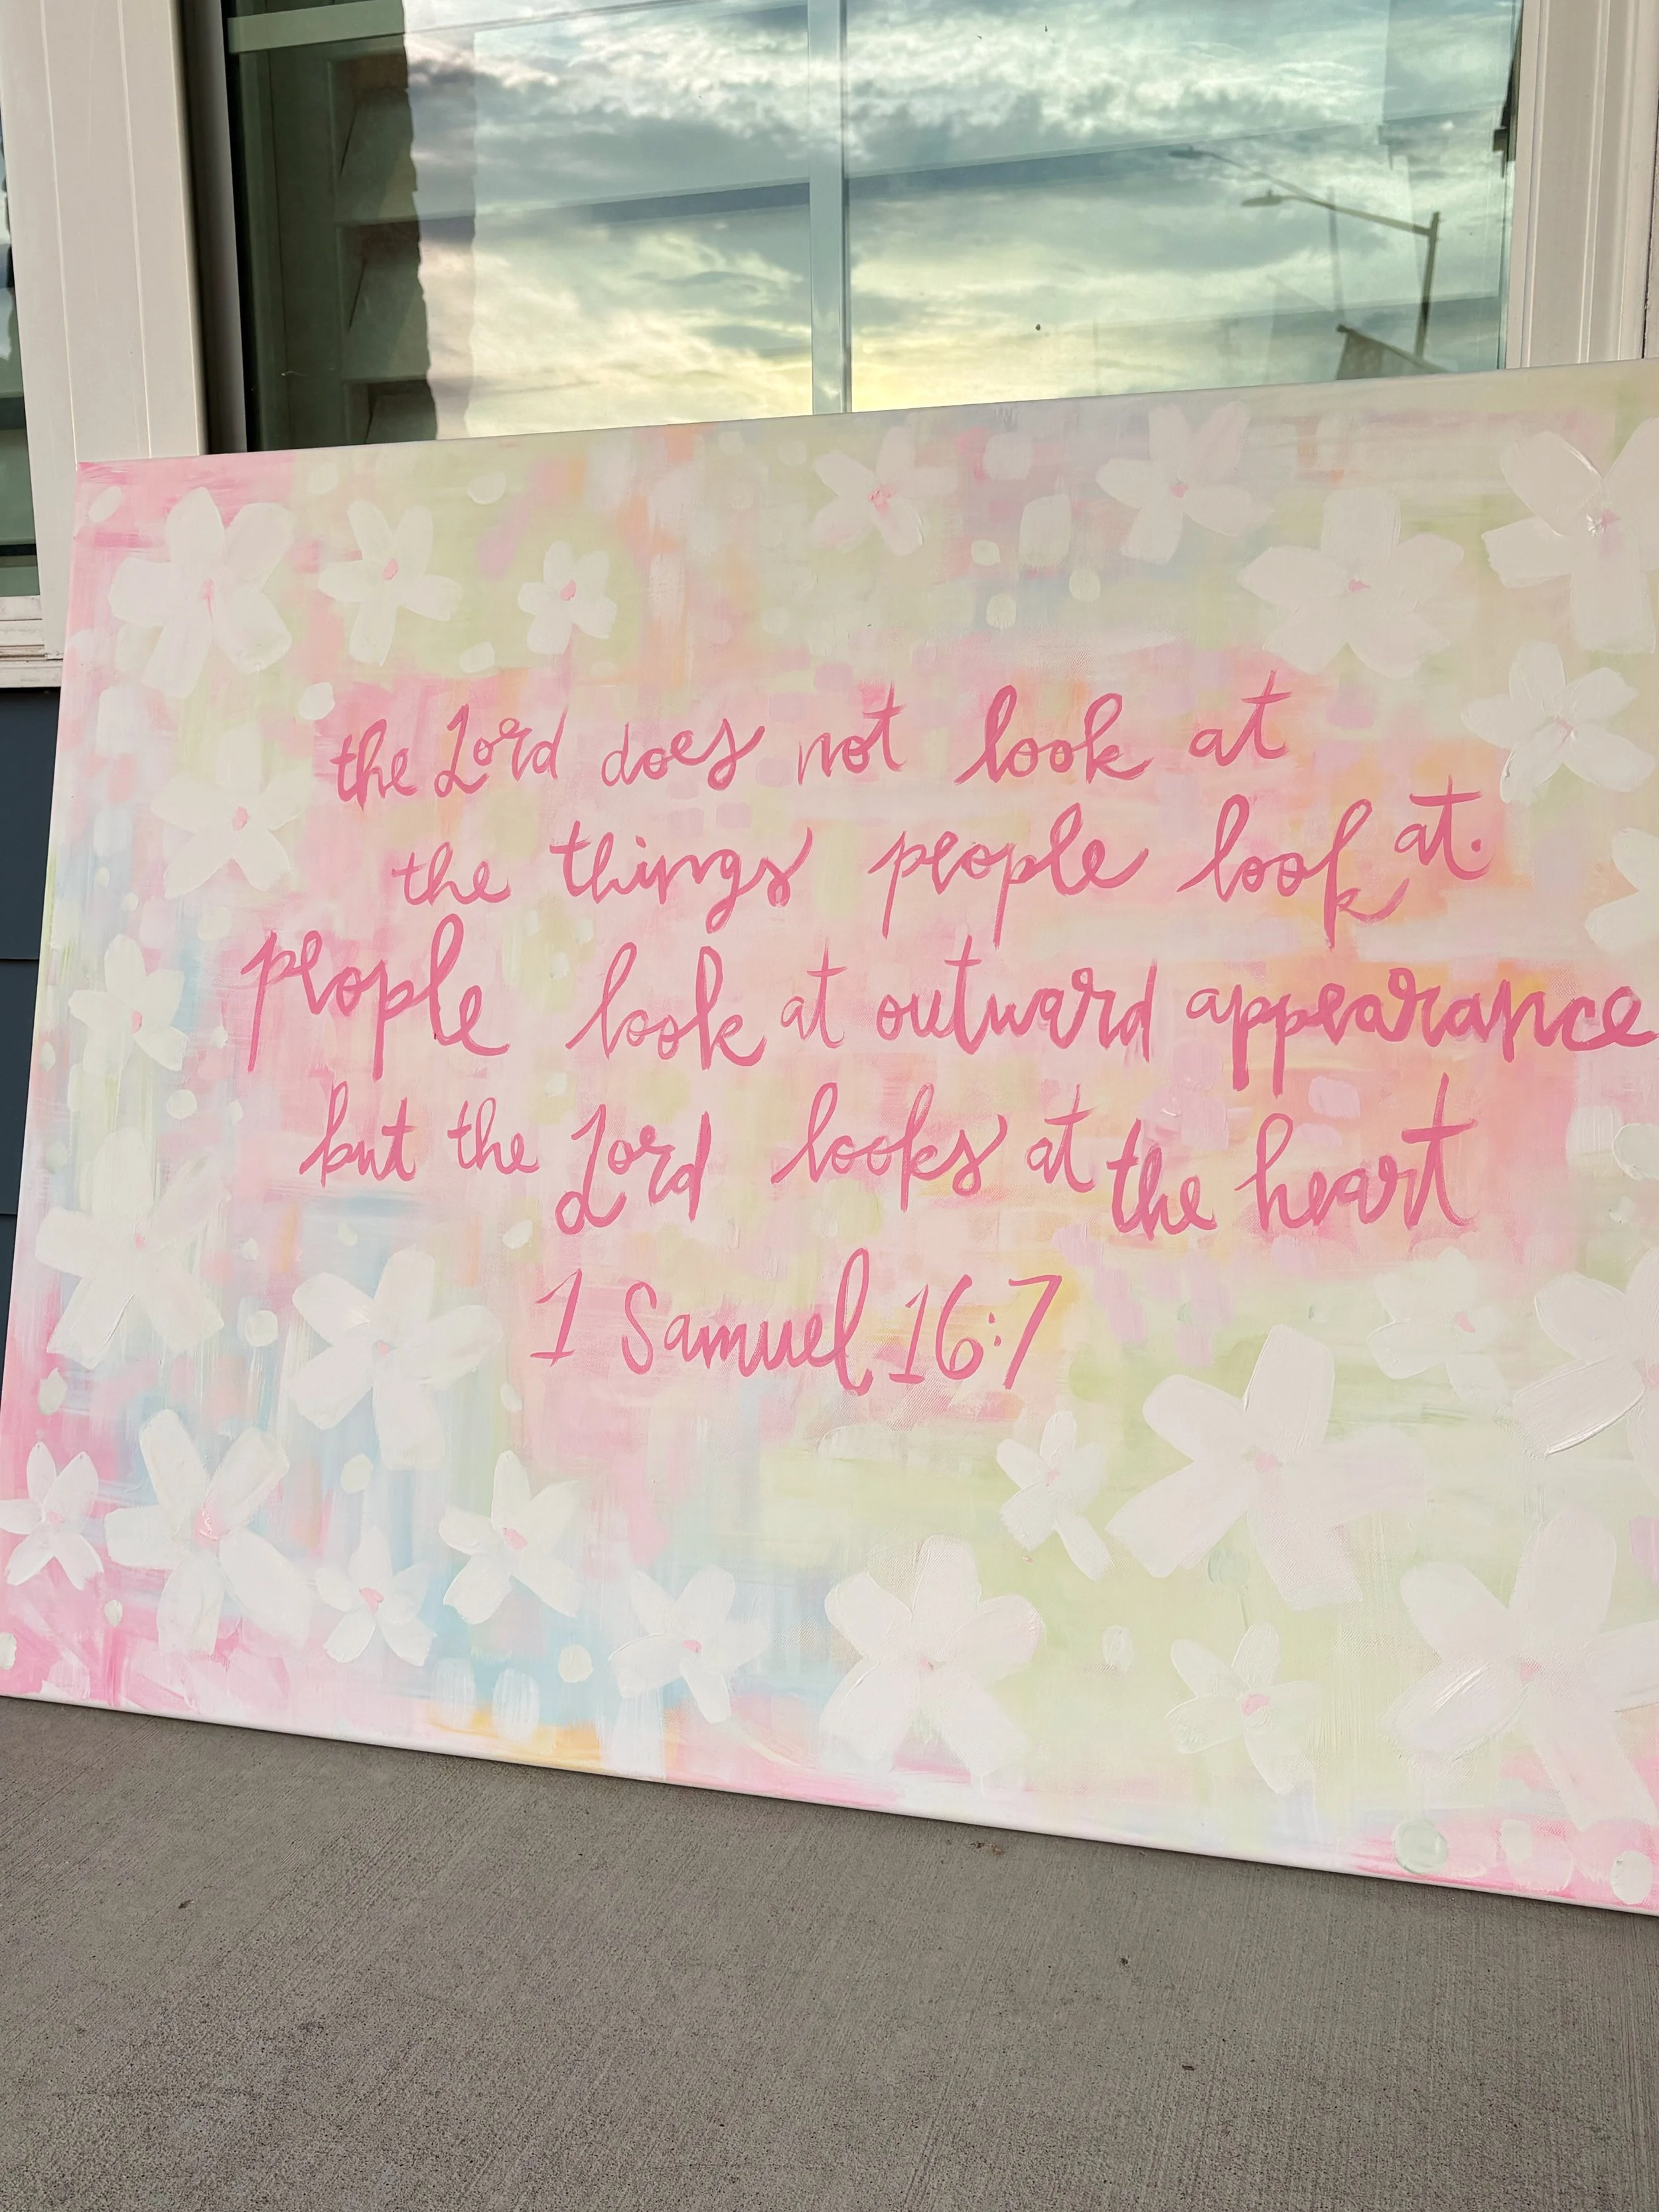 the Lord does not look at
the things people look at.
people look at outward appearance
but the Lord looks at the heart
1 Samuel 16:7